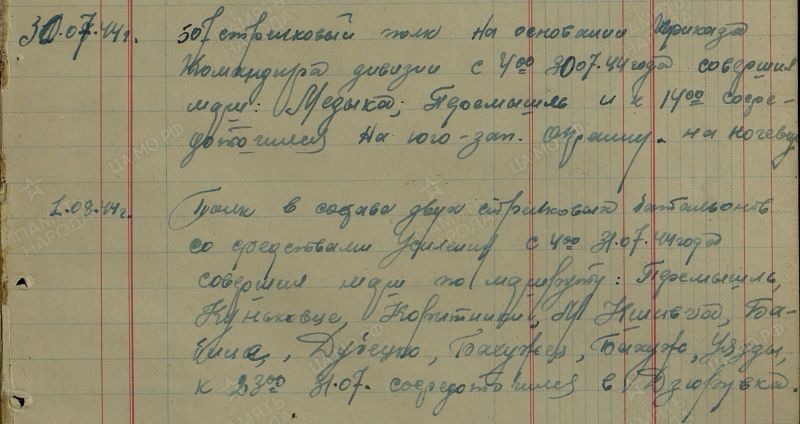 30.07.44г. 507 стрелковый полк на основании приказа
Командира дивизии с 4 00 30 07.44 года совершил
марш: Медыка, Перемышль и к 14 00 сосре-
доточился на юго-зап. окраину. на ночевку
1.08.44г. Полк в состава двух стрелковых батальонов
со средствами усиления с 4 00 31.07.44 года
совершил марш по маршруту: Перемышль,
Куньковце, Корытники, М
Дубецко, Бахужец, Бахуж, Уязды,
к 23 00 31.07. сосредоточился в Дзюрувка.
ЦАМО.РФ
ПАМЯТЬ
НАРОДА